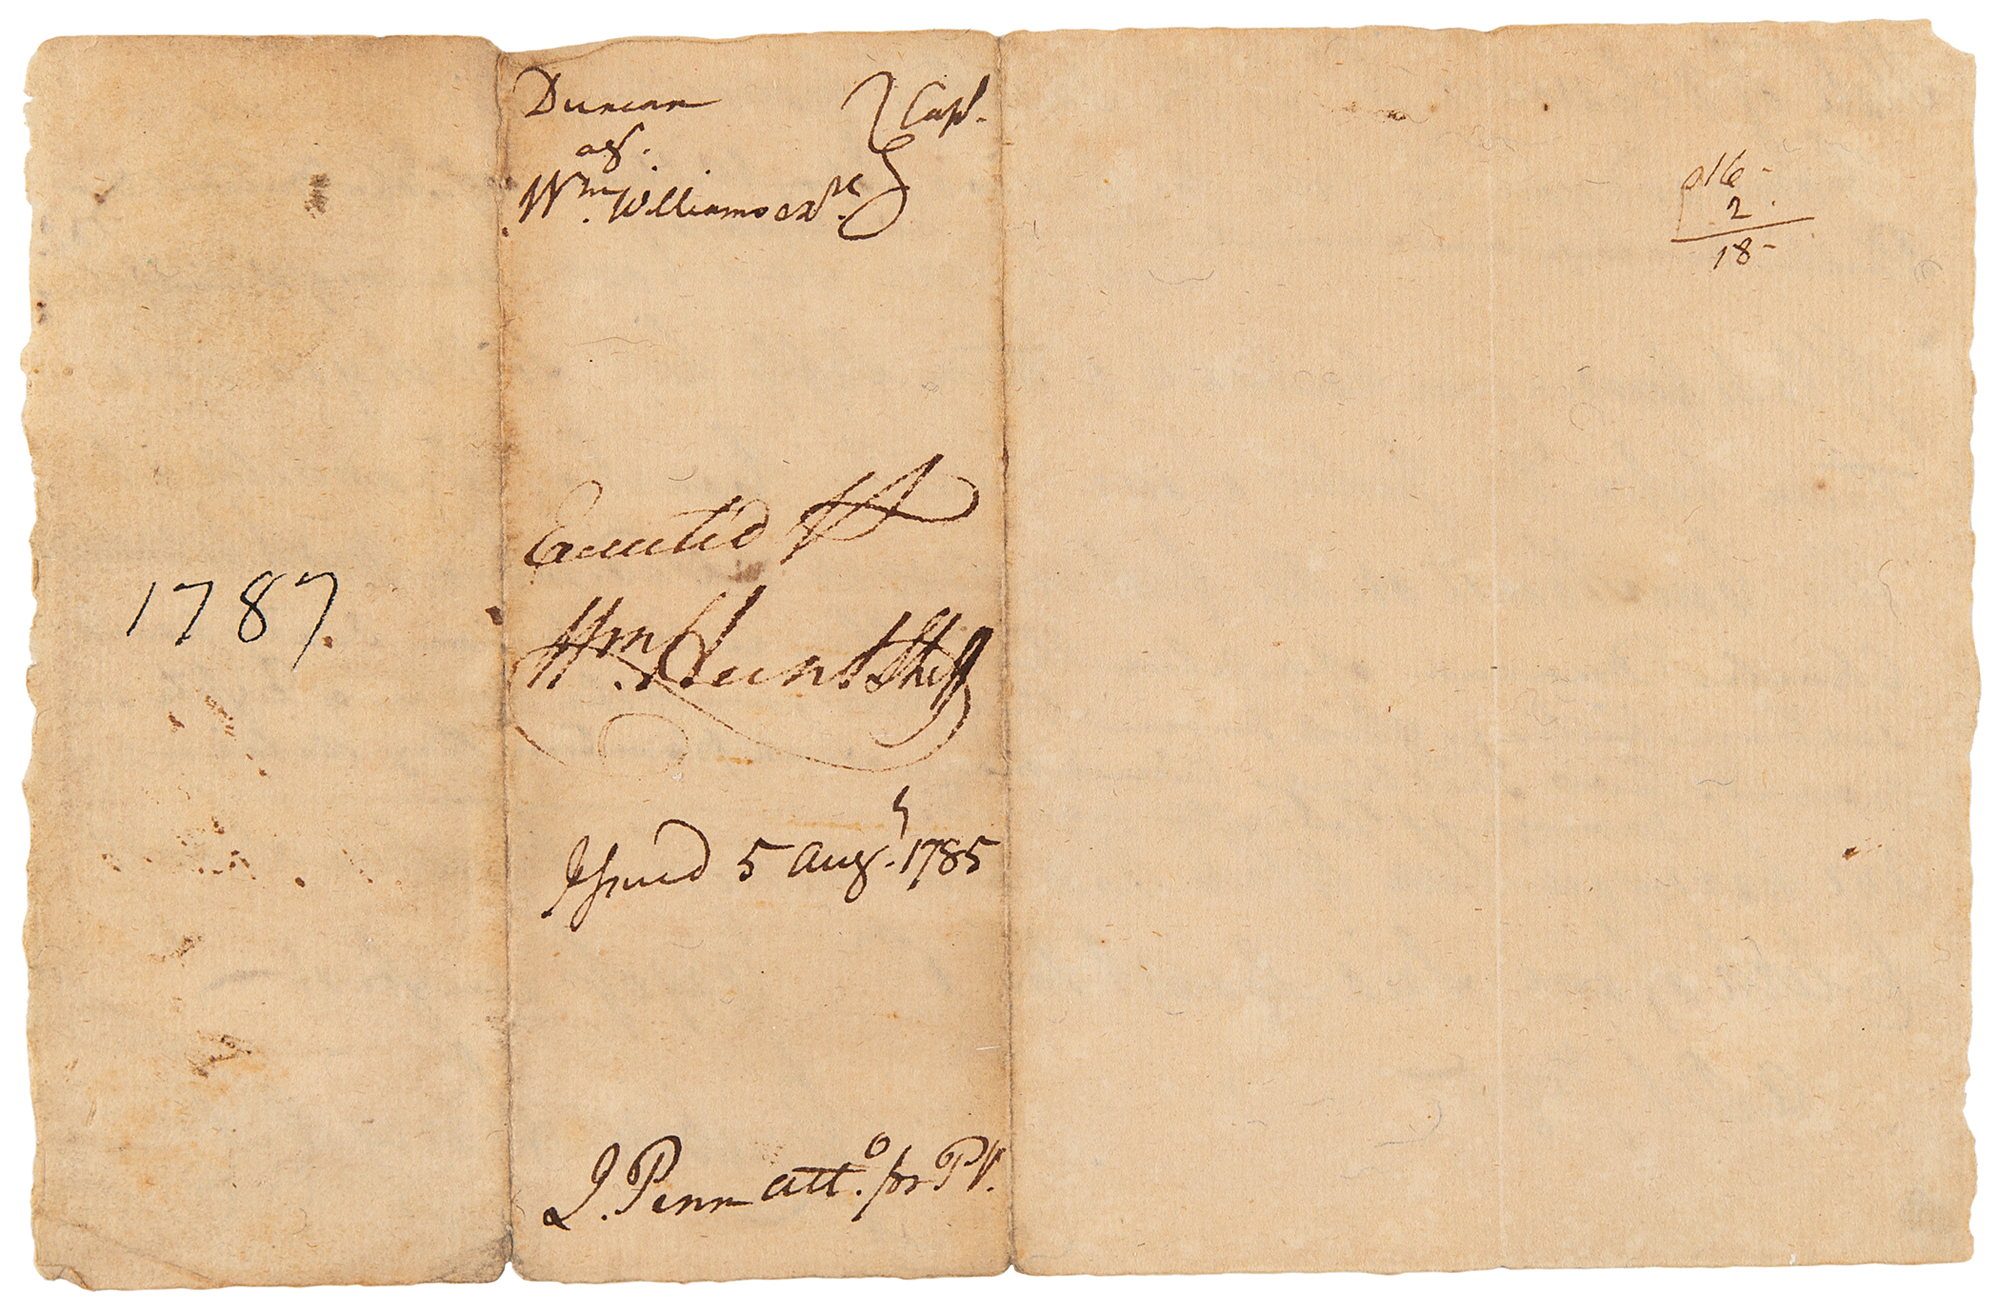 1787
Duncan
agt.
Wm. Williams exr.
Caps.
Executed pr
Wm. Hunt Shff
Issued 5 Augt. 1785
J. Penn atto. for Pl.
16 -
2.
18 -